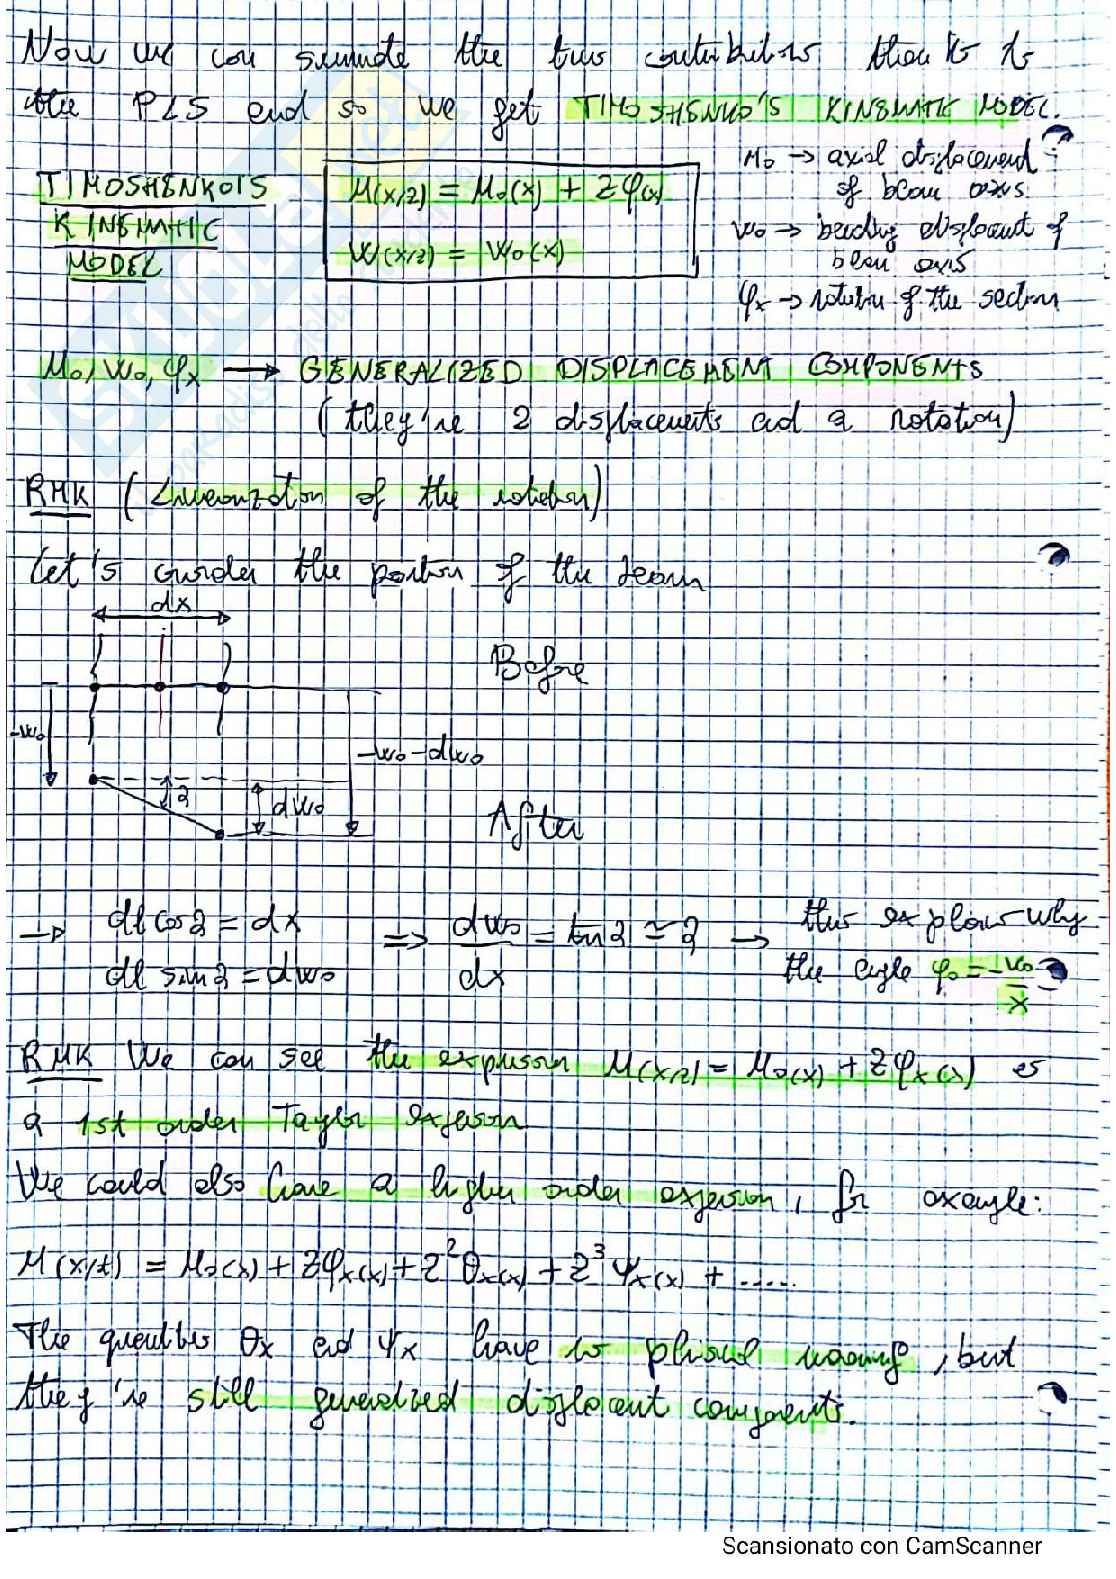 Now we can summate the two contributions thanks to
the PLS and so we get TIMOSHENKO'S KINEMATIC MODEL.
TIMOSHENKO'S
KINEMATIC
MODEL
u(x,z) = u₀(x) + zφ(x)
w(x,z) = w₀(x)
u₀ → axial displacement
of beam axis
w₀ → bending displacement of
beam axis
φx → rotation of the section
u₀, w₀, φx → GENERALIZED DISPLACEMENT COMPONENTS
(they're 2 displacements and a rotation)
RMK (Linearization of the rotation)
Let's consider the portion of the beam
dx
Before
-w₀
-w₀-dw₀
2
dw₀
After
→ dl cos 2 = dx
dl sin 2 = dw₀
=> dw₀/dx = tan 2 ≃ 2 → this explain why
the angle φ₀ = -w₀/x
RMK We can see the expression u(x,z) = u₀(x) + zφx(x) as
a 1st order Taylor expansion
We could also have a higher order expansion, for example:
u(x,z) = u₀(x) + zφx(x) + z²θx(x) + z³ψx(x) + .....
The quantities θx and ψx have no phisical meaning, but
they're still generalized displacement components.
Scansionato con CamScanner